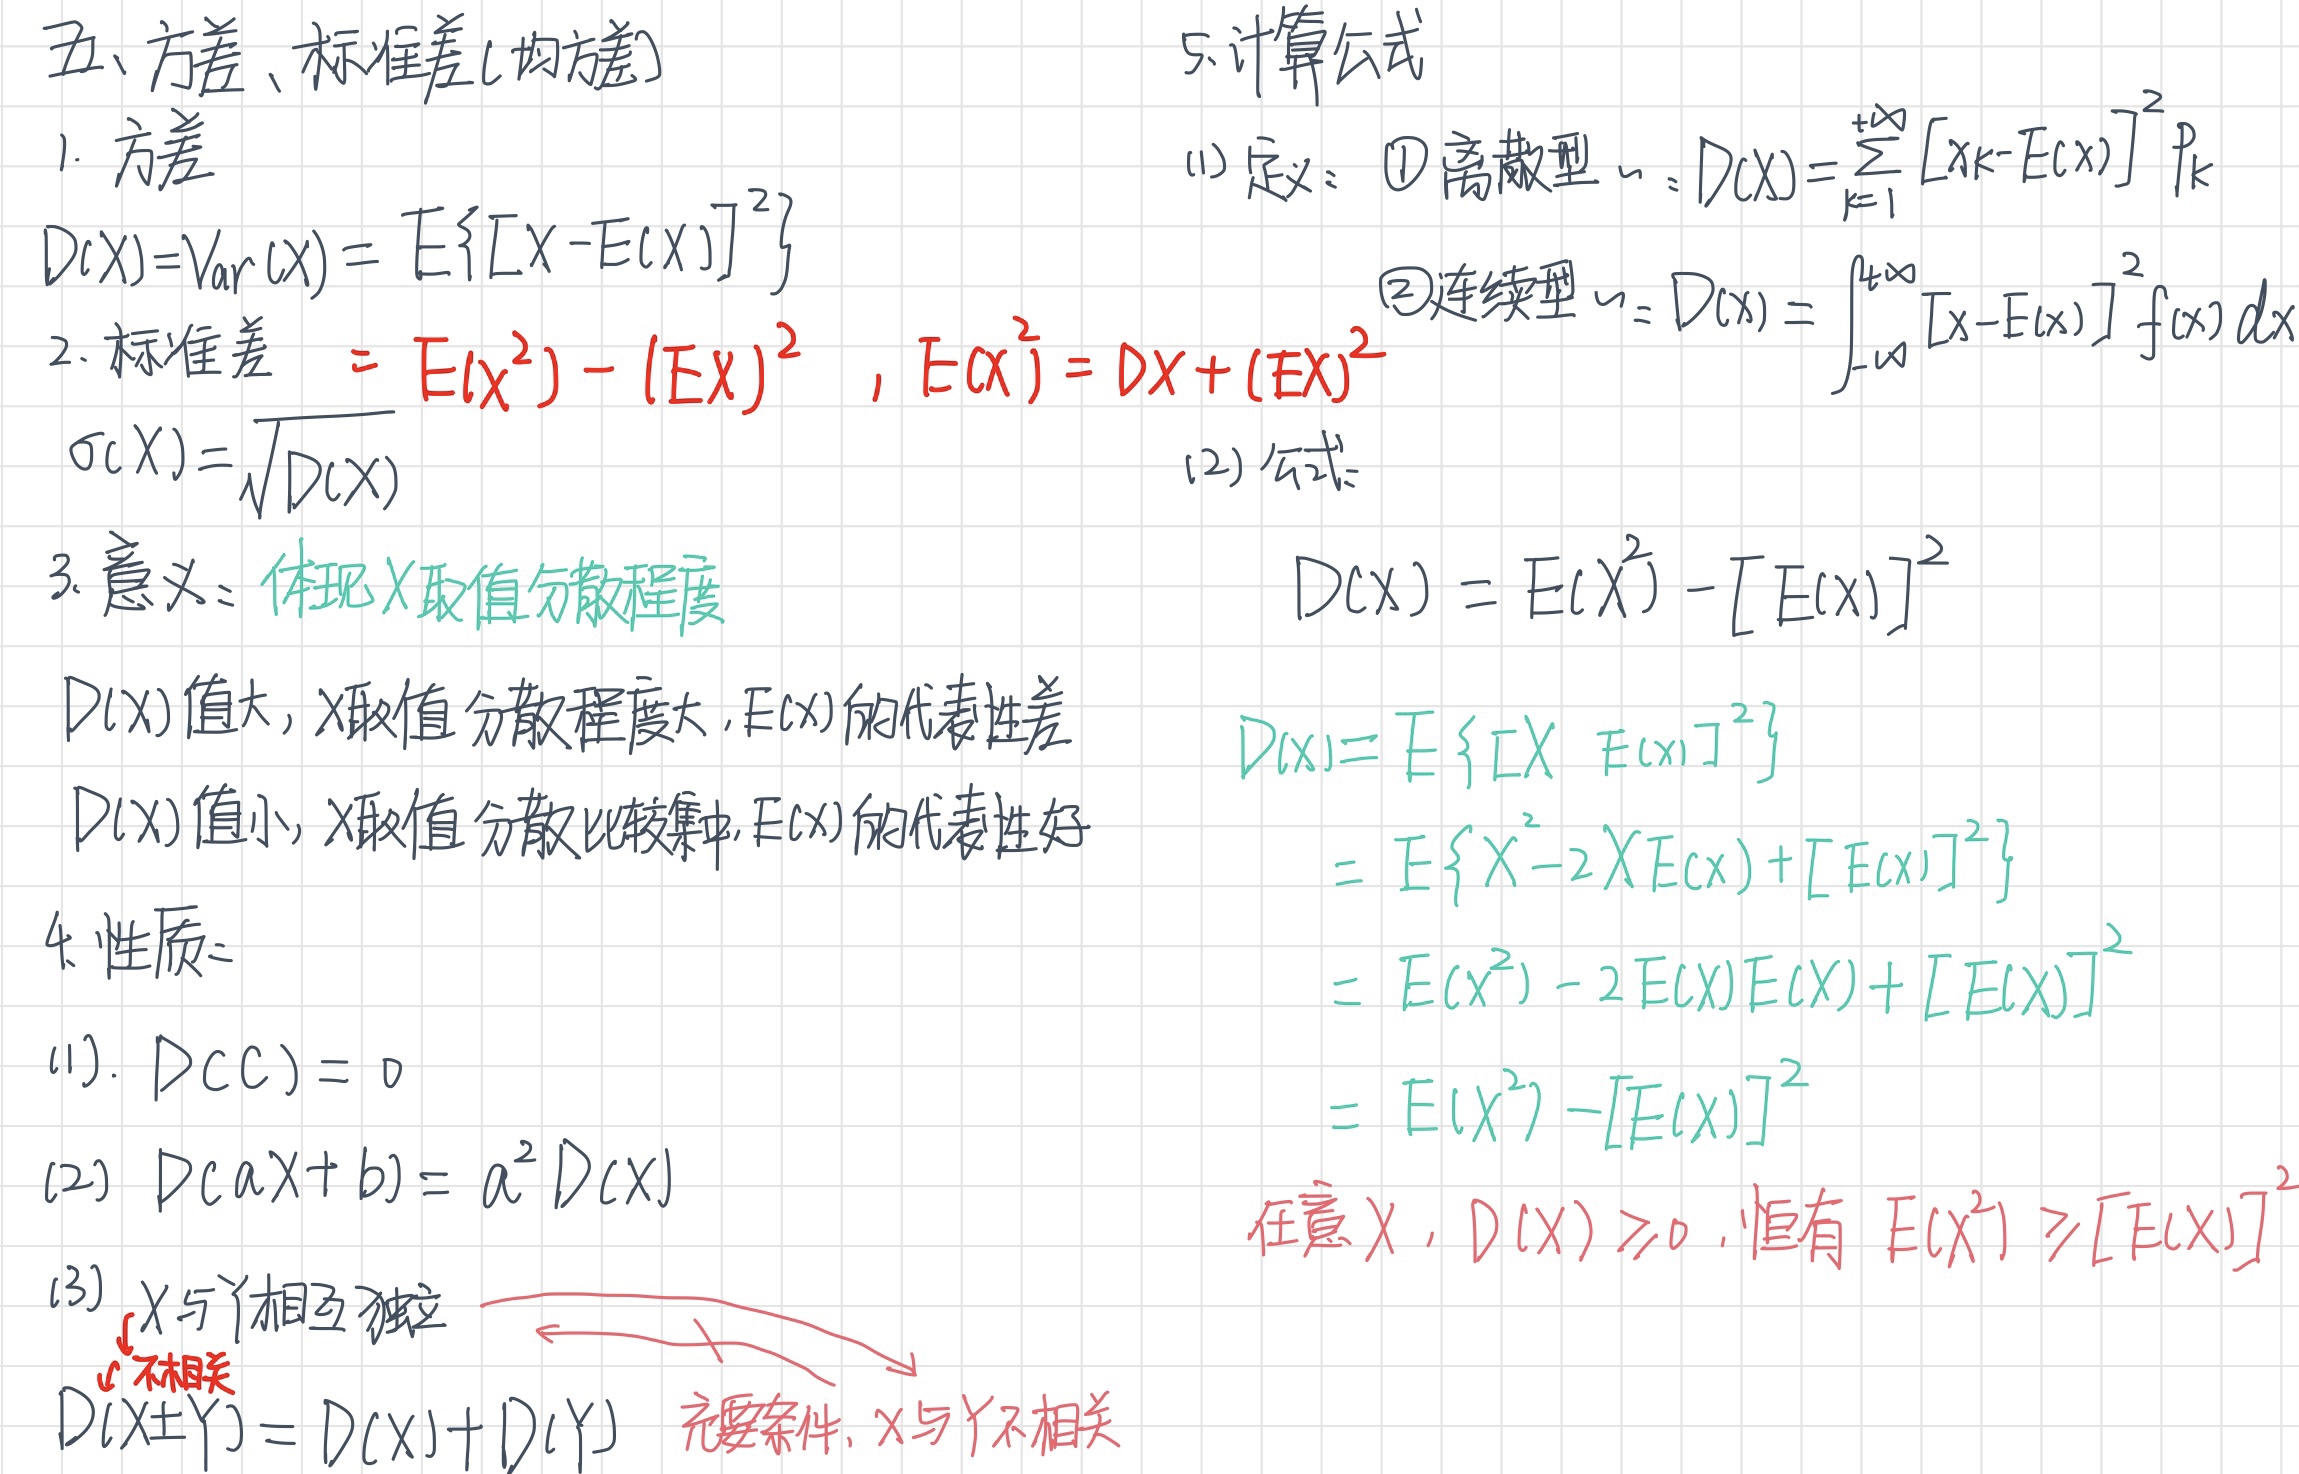 五、方差、标准差(均方差)
1. 方差
D(X)=Var(X)= E{[X-E(X)]²}
= E(X²) - (EX)² , E(X²) = DX + (EX)²
2. 标准差
σ(X)=√D(X)
3. 意义: 体现X取值分散程度
D(X)值大, X取值分散程度大, E(X)的代表性差
D(X)值小, X取值分散比较集中, E(X)的代表性好
4. 性质:
(1). D(C) = 0
(2) D(aX+b) = a²D(X)
(3) X与Y相互独立
不相关
D(X±Y) = D(X)+D(Y)
充要条件, X与Y不相关
5. 计算公式
(1) 定义: ① 离散型 ~: D(X)=∑_{k=1}^{+∞} [xₖ-E(X)]² Pₖ
② 连续型 ~: D(X) = ∫_{-∞}^{+∞} [x-E(x)]² f(x) dx
(2) 公式:
D(X) = E(X²) - [E(X)]²
D(X) = E{[X E(X)]²}
= E{X²-2XE(X)+[E(X)]²}
= E(X²) - 2E(X)E(X)+[E(X)]²
= E(X²) - [E(X)]²
任意X, D(X) ≥ 0, 恒有 E(X²) ≥ [E(X)]²